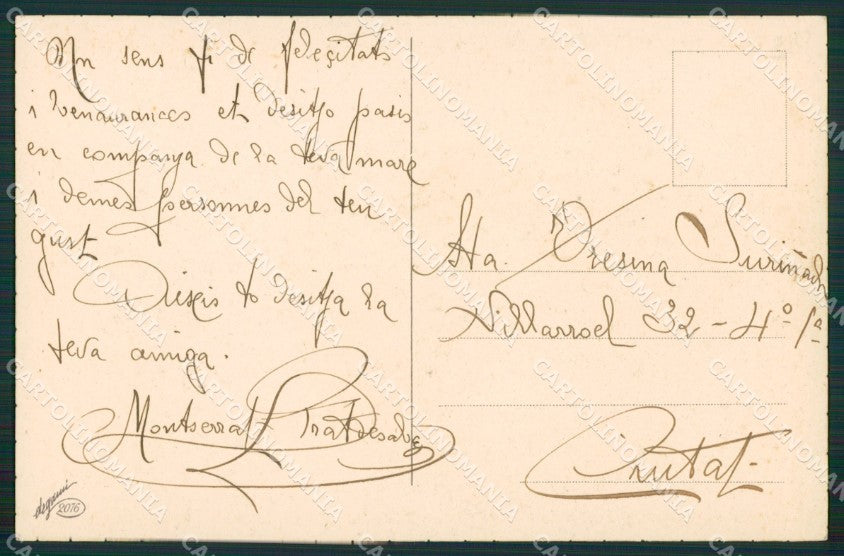 Un sens fi de feleçitats
i venturances et desitjo pasis
en companya de la teva mare
i demés personnes del teu
gust
Aixís to desitja la
teva amiga.
Montserrat Pratdesaba
Sta. Tresina Suriñach
Villarroel 32 - 4º 1ª
Ciutat.
degami
2076
CARTOLINOMANIA